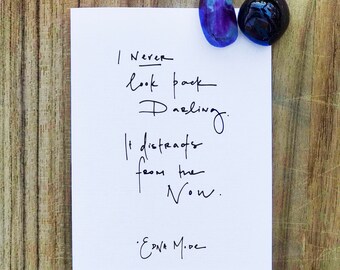 I NEVER
look back
Darling.
It distracts
from the
Now.
·EDNA MODE